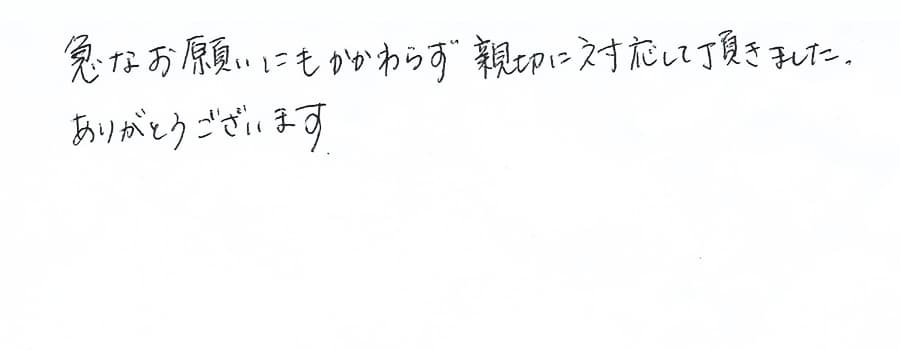 急なお願いにもかかわらず親切に対応して頂きました。
ありがとうございます